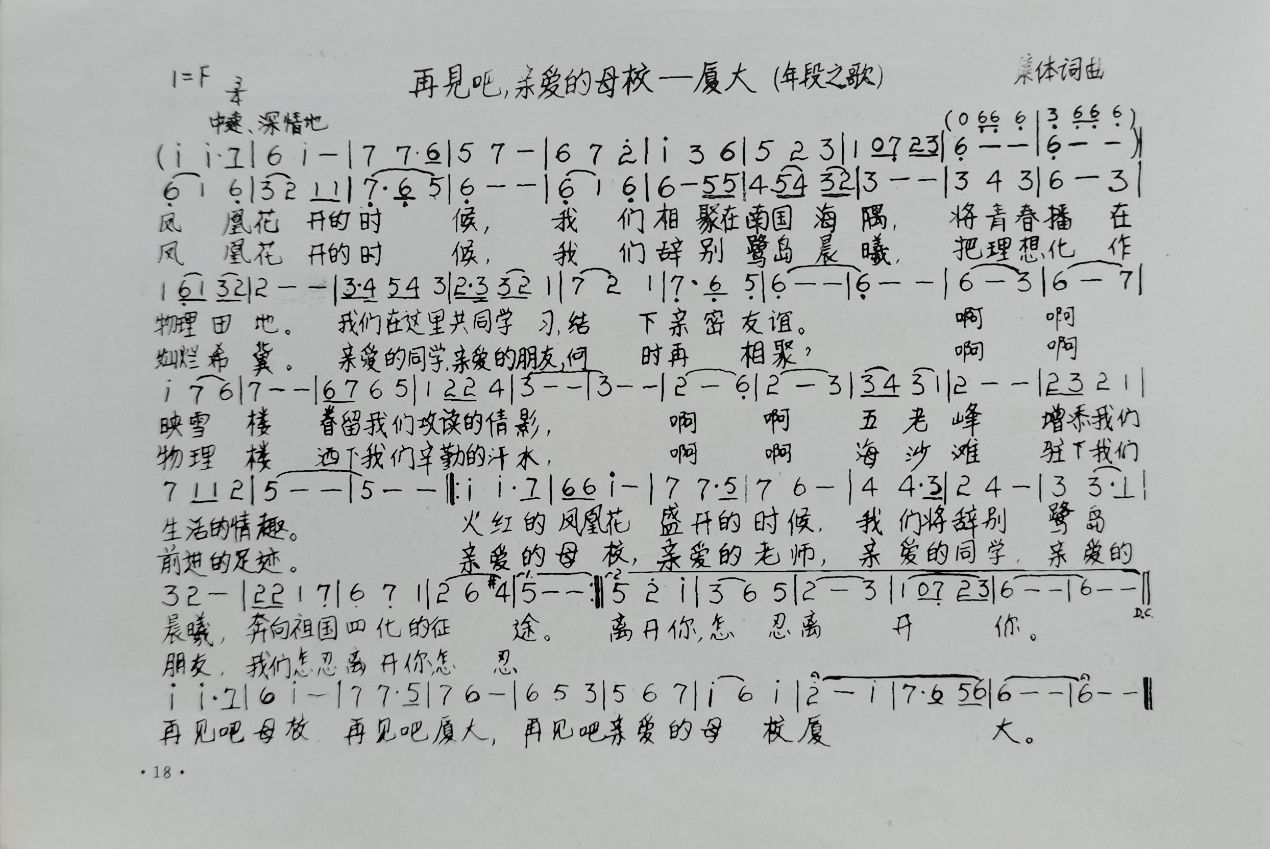 1=F 3/4 再见吧,亲爱的母校—厦大 (年段之歌) 集体词曲
中速、深情地
(0 66 6 | 3 66 6)
(i i·7 | 6 i – | 7 7·6 | 5 7 – | 6 7 2 | i 3 6 | 5 2 3 | 1 07 23 | 6 – – | 6 – – )
6 1 6 | 32 11 | 7·6 5 | 6 – – | 6 1 6 | 6 – 55 | 4 54 32 | 3 – – | 3 4 3 | 6 – 3 |
凤 凰花 开的时 候, 我 们相 聚在南国 海 隅, 将青春播 在
凤 凰花 开的时 候, 我 们辞 别 鹭岛 晨 曦, 把理想化 作
1 61 32 | 2 – – | 3·4 54 3 | 2·3 32 1 | 7 2 1 | 7·6 5 | 6 – – | 6 – – | 6 – 3 | 6 – 7 |
物理 田 地。 我们在这里共同学 习,结 下亲密友谊。 啊 啊
灿烂希 冀。 亲爱的同学,亲爱的朋友,何 时再 相聚, 啊 啊
i 7 6 | 7 – – | 67 6 5 | 1 22 4 | 3 – – | 3 – – | 2 – 6 | 2 – 3 | 34 31 | 2 – – | 23 2 1 |
映雪 楼 眷留我们攻读的倩影, 啊 啊 五 老 峰 增添我们
物理 楼 洒下我们辛勤的汗水, 啊 啊 海 沙 滩 驻下我们
7 11 2 | 5 – – | 5 – – ‖: i i·7 | 66 i – | 7 7·5 | 7 6 – | 4 4·3 | 2 4 – | 3 3·1 |
生活的情趣。 火红的凤凰花 盛开的时候, 我们将辞别 鹭岛
前进的足迹。 亲爱的母 校, 亲爱的老师, 亲爱的同学, 亲爱的
3 2 – | 22 1 7 | 6 7 1 | 2 6 #4 | 1 5 – – :‖ 2 5 2 i | 3 6 5 | 2 – 3 | 1 07 23 | 6 – – | 6 – – ‖ D.C.
晨曦, 奔向祖国四化的征 途。 离开你,怎 忍离 开 你。
朋友, 我们怎忍离开你,怎 忍
i i·7 | 6 i – | 7 7·5 | 7 6 – | 6 5 3 | 5 6 7 | i 6 i | 2 – i | 7·6 56 | 6 – – | 6 – – ‖
再见吧母校 再见吧厦大, 再见吧亲爱的母 校厦 大。
·18·